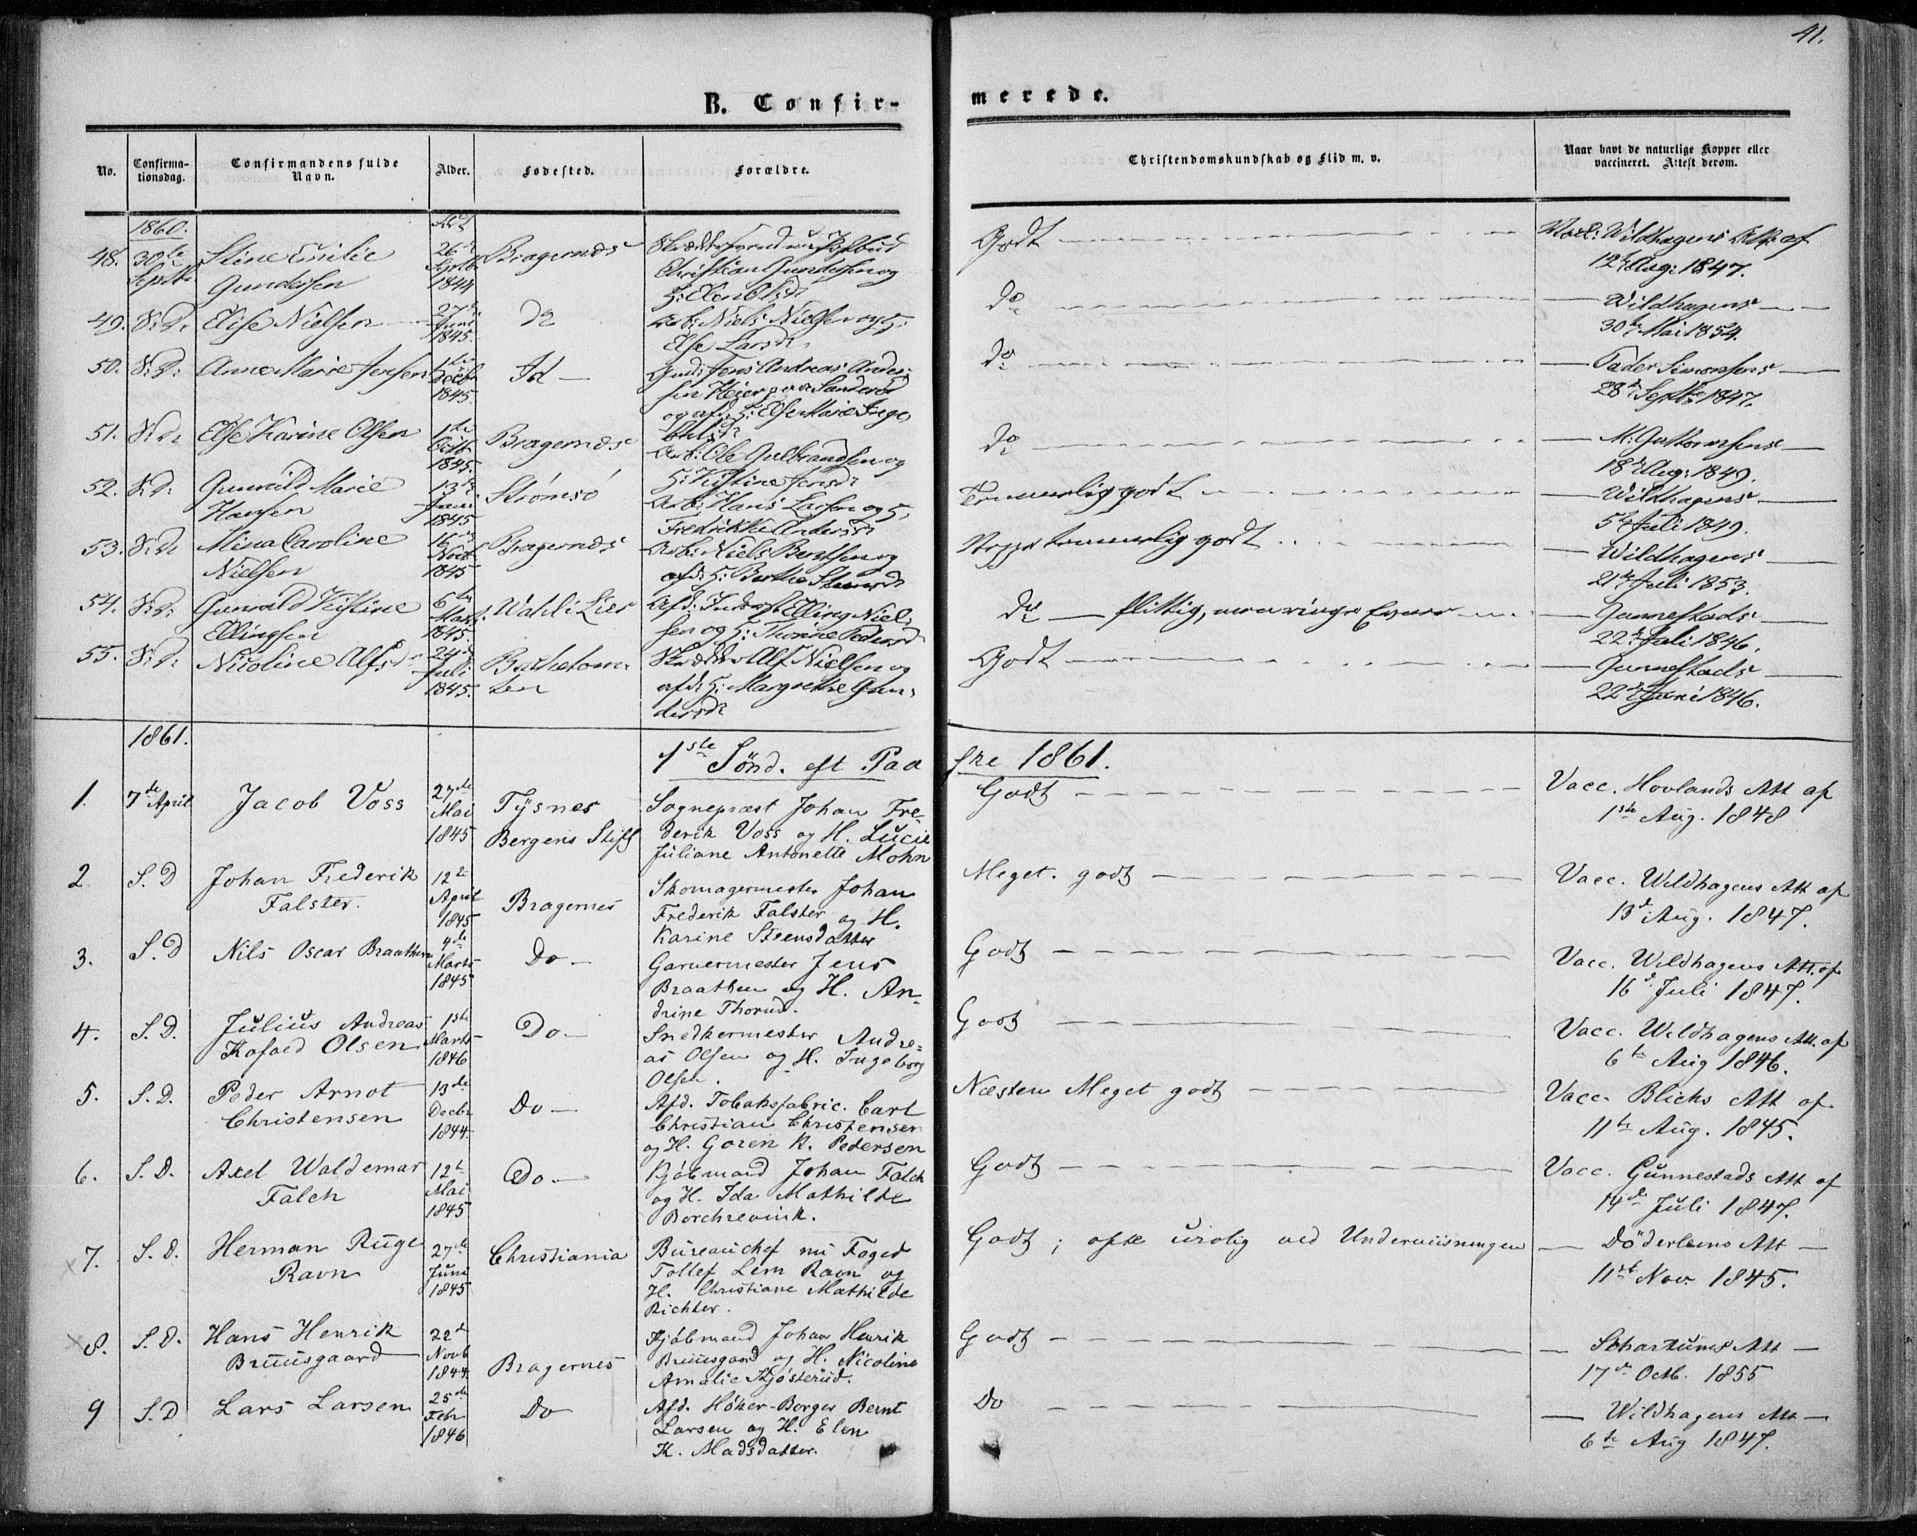 41.
B. Confirmerede.
No. Confirmationsdag. Confirmandens fulde Navn. Alder. Fødested. Forældre. Christendomskundskab og Flid m. v. Naar havt de naturlige Kopper eller vaccineret. Attest derom.
1860.
48. 30te Septb. Stine Emilie Gundersen 26de Septb. 1844 Bragernæs Christian Gundersen og H: Elen Olsd: Godt Wildhagens Att: af 12te Aug: 1847.
49. S: D: Elise Nielsen 27de Juni 1845. Do Arb: Niels Nielsen og H: Else Larsd: Do Wildhagens 30te Mai 1854.
50. S: D: Anne Marie Jensen 1ste 1845 Id — Jens Andreas Andersen og afd: H: Else Marie Do Peder Simonsens 28de Septb 1847.
51. S: D: Else Karine Olsen 1ste Octb 1845. Bragernæs Arb: Ole Gulbrandsen og H: Kistine Jensd: Do M: Guttormsens 18de Aug: 1849.
52. S: D: Gunvild Marie Hansen 13de 1845 Strømsö Arb: Hans Larsen og H: Fredrikke Andersd: Temmelig godt Wildhagens 5te Juli 1849.
53. S: D: Mina Caroline Nielsen 16de Novb 1845 Bragernæs Arb: Niels Berntsen og afd: H: Berthe Neppe temmelig godt Wildhagens 21de Juli 1853.
54. S: D: Gunvald Kistine Ellingsen 6te Marts 1845. Wahl i Lier Afd: Inderst Elling Nielsen og H: Thorine Pedersd: Do — flittig, men ringe Evner Gunnestads 22de Juli 1846.
55. S: D: Nicoline Alfsd: 24de Juli 1845. Alf Nielsen og afd: H: Margrethe Gundersd: Godt Gunnestads 22de Juni 1846.
1861.
1ste Sönd. eft. Paaske 1861.
1. 7de April Jacob Voss 27de Mai 1845 Tysnes Bergens Stift Sognepræst Johan Frederik Voss og H. Lucie Juliane Antonette Mohn Godt Vacc. Hovlands Att af 1ste Aug. 1848
2 S. D Johan Frederik Falster. 12te April 1845 Bragernes Skomagermester Johan Frederik Falster og H. Karine Steensdatter Meget godt Vacc. Wildhagens Att af 13de Aug. 1847.
3. S. D Nils Oscar Braathen 4de Marts 1845 Do — Garvermester Jens Braathen og H. Andrine Thorud. Godt Vacc. Wildhagens Att. af 16de Juli 1847.
4. S. D. Julius Andreas Kofoed Olsen 1ste Marts 1846 Do — Snedkermester Andreas Olsen og H. Ingeborg Olsen. Godt Vacc. Wildhagens Att. af 6te Aug 1846.
5. S. D. Peder Arnot Christensen 13de Decbr 1844. Do — Afd. Tobaksfabric. Carl Christian Christensen og H. Goren K. Pedersen Næsten Meget godt Vacc. Blichs Att af 11te Aug. 1845.
6. S. D. Axel Waldemar Falch 12te Mai 1845 Do — Kjöbmand Johan Falch og H. Ida Mathilde Borchrevink. Godt Vacc. Gunnestads Att af 14de Juli 1847.
x 7. S. D. Herman Ruge Ravn 27de Juni 1845 Christiania Bureauchef nu Foged Tollef Lem Ravn og H. Christiane Mathilde Richter. Godt; ofte urolig ved Underviisningen — Döderleins Att — 11te Nov. 1845.
x 8. S. D. Hans Henrik Bruusgaard 22de Novb 1844. Bragernes Kjöbmand Johan Henrik Bruusgaard og H. Nicoline Amalie Kjösterud. Godt — Schartums Att — 17de Octb. 1855
9 S. D Lars Larsen 25de Febr 1846 Do Afd. Höker-Borger Bernt Larsen og H. Elen K. Madsdatter. Do — Wildhagens Att — 6te Aug 1847.